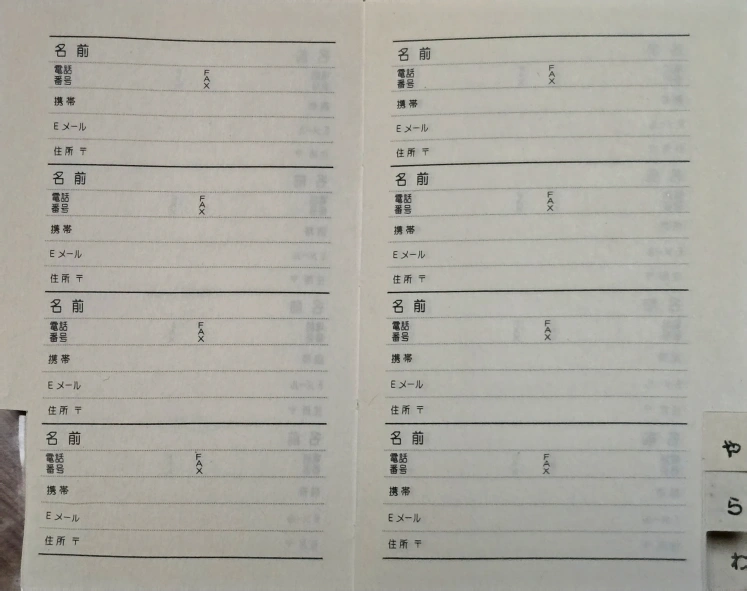 名前
電話番号 FAX
携帯
Eメール
住所 〒
名前
電話番号 FAX
携帯
Eメール
住所 〒
名前
電話番号 FAX
携帯
Eメール
住所 〒
名前
電話番号 FAX
携帯
Eメール
住所 〒
名前
電話番号 FAX
携帯
Eメール
住所 〒
名前
電話番号 FAX
携帯
Eメール
住所 〒
名前
電話番号 FAX
携帯
Eメール
住所 〒
名前
電話番号 FAX
携帯
Eメール
住所 〒
や
ら
わ